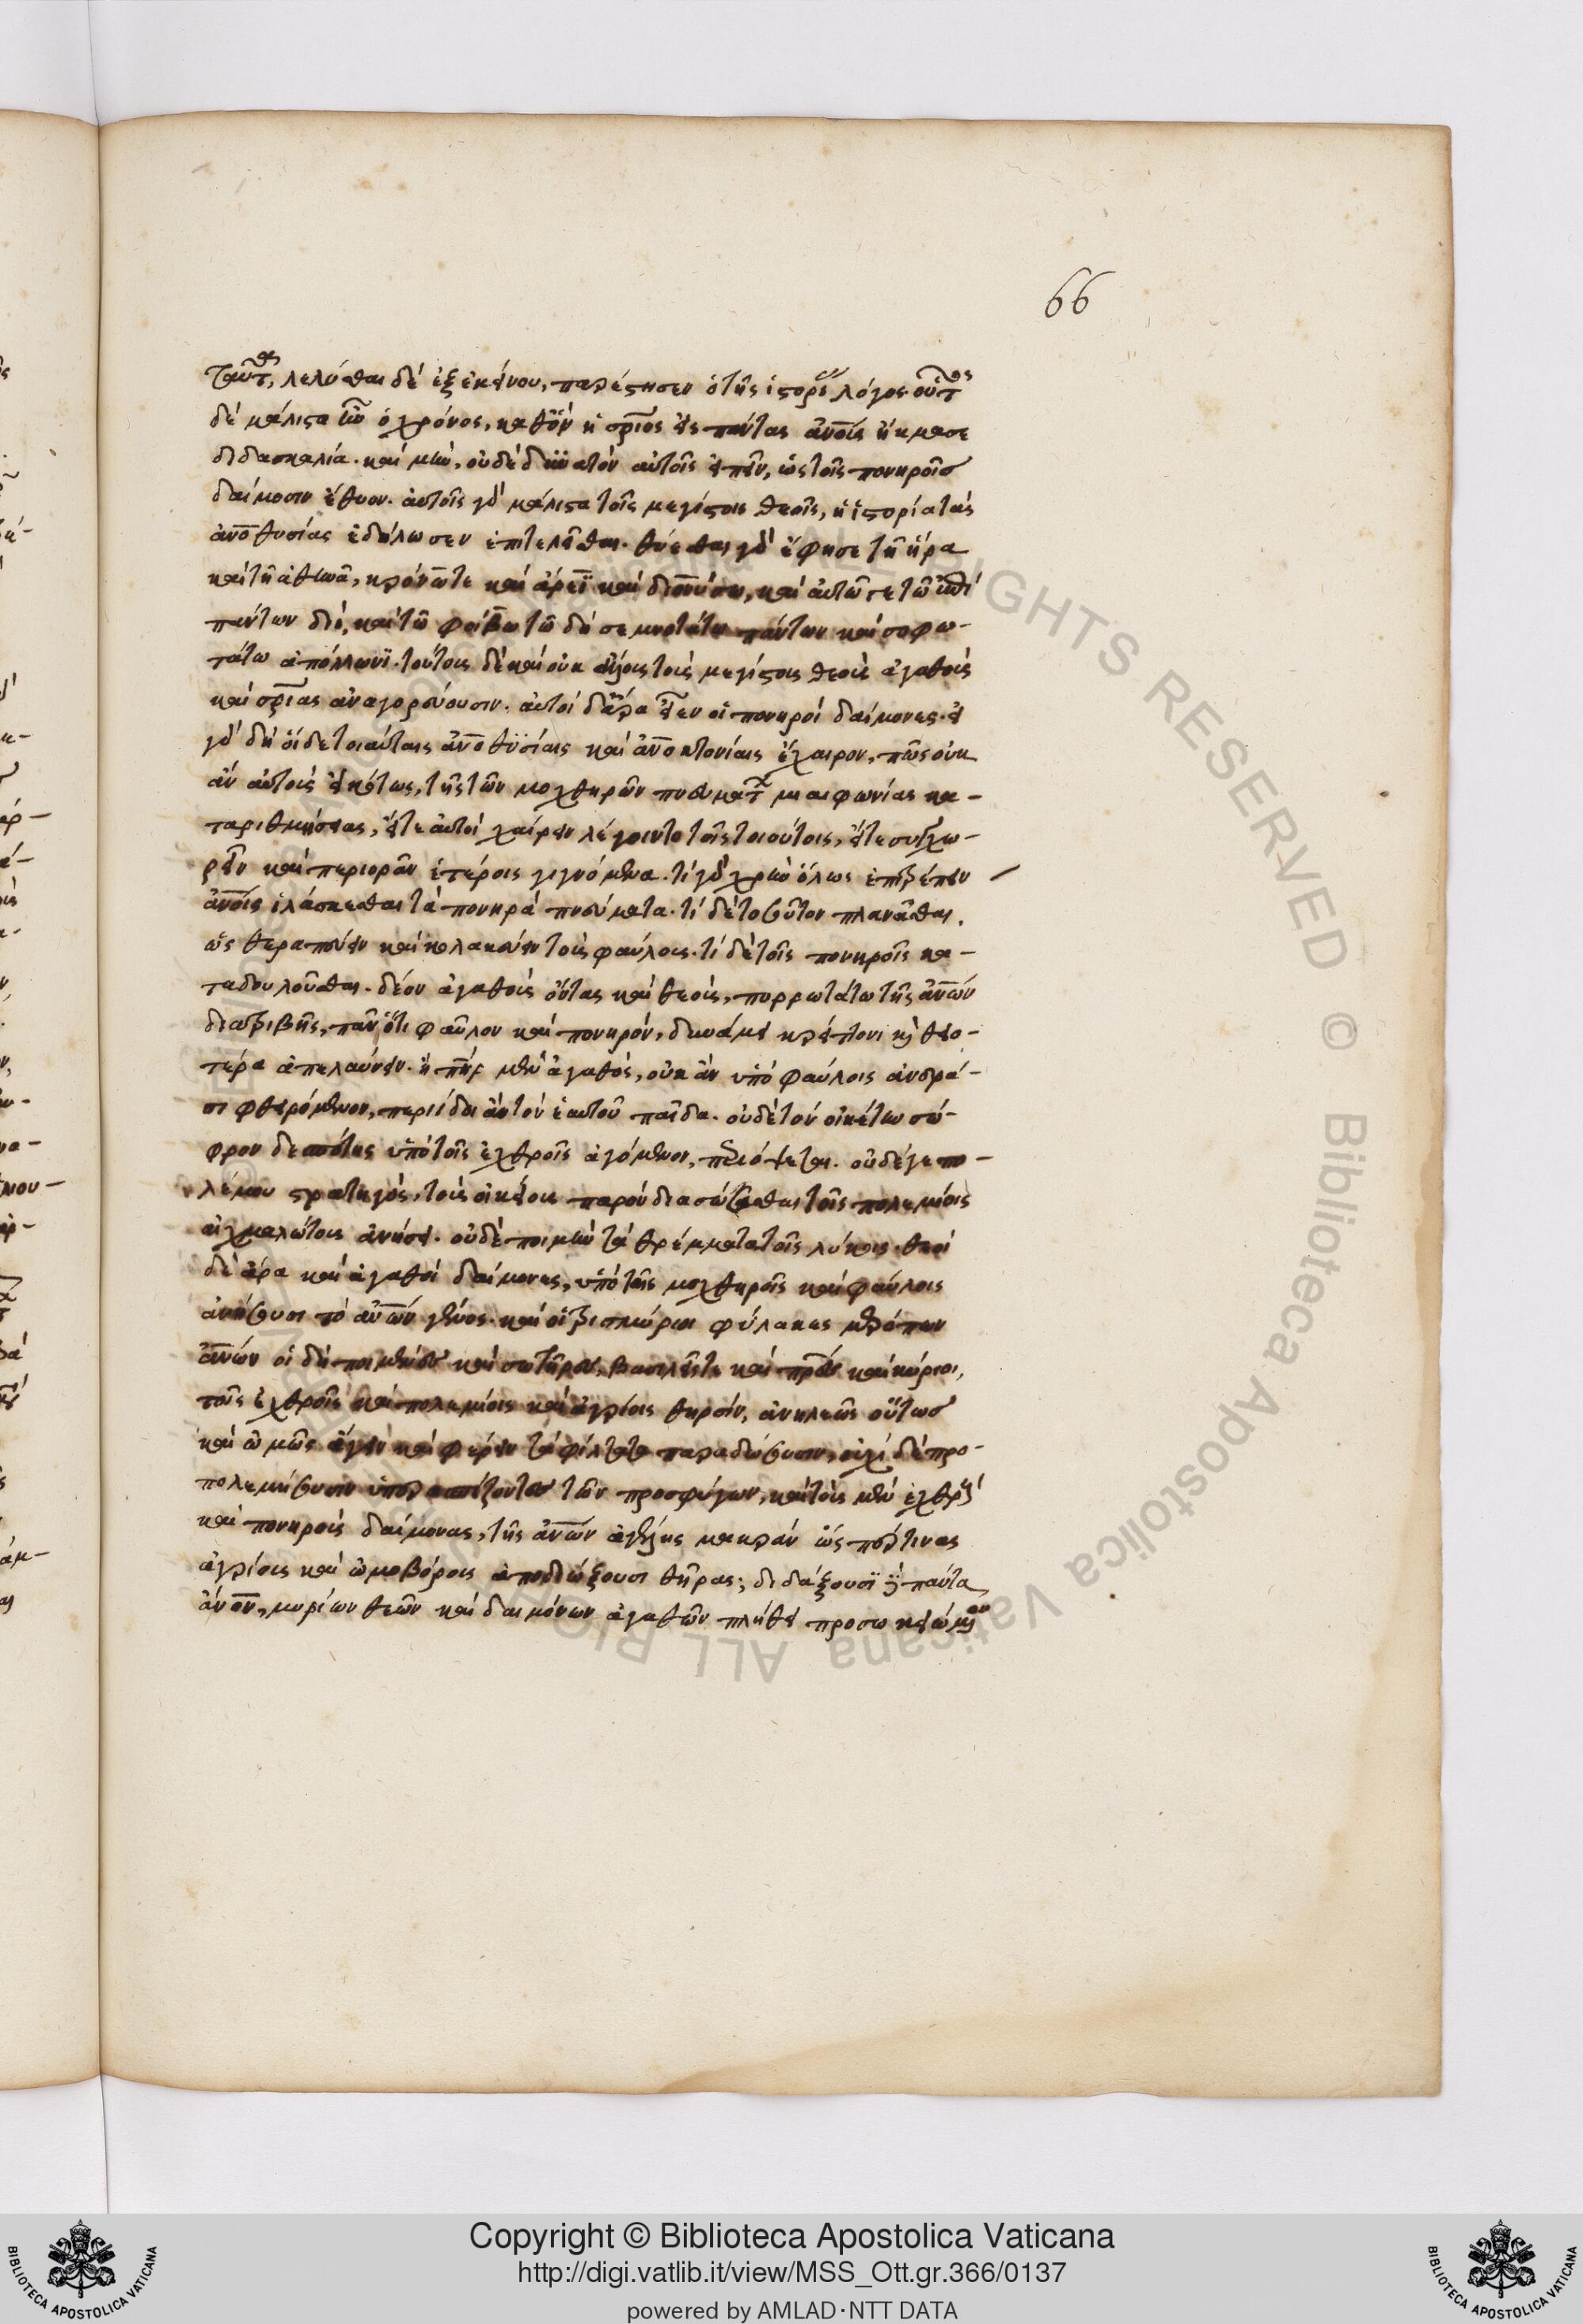 66
ταῦτα, λελύσθαι δὲ ἐξ ἐκείνου, παρέστησεν ὁ τῆς ἱστορίας λόγος. οὗτος
δὲ μάλιστα ἦν ὁ χρόνος, καθ' ὃν ἡ σριος εἰς πάντας ἀνοις ἤκμασε
διδασκαλία. καὶ μὴν, οὐδὲ δυνατὸν αὐτοῖς εἰπεῖν, ὡς τοῖς πονηροῖς
δαίμοσιν ἔθυον. αὐτοῖς γὰρ μάλιστα τοῖς μεγίστοις θεοῖς, ἡ ἱστορία τὰς
ἀνοθυσίας ἐδήλωσεν ἐπιτελεῖσθαι. θύεσθαι γὰρ ἔφησε τῇ ἥρα
καὶ τῇ ἀθηνᾶ, κρόνω τε καὶ ἄρεϊ καὶ διονύσω, καὶ αὐτῶ τε τῶ ἐπὶ
πάντων διὶ, καὶ τῶ φοίβω τῶ δὴ σεμνοτάτω πάντων καὶ σοφω-
τάτω ἀπόλλωνϊ. τούτους δὲ καὶ οὐκ ἄλλους τοὺς μεγίστους θεοὺς ἀγαθοὺς
καὶ σρίας ἀναγορεύουσιν. αὐτοὶ δ' ἄρα εἶεν οἱ πονηροὶ δαίμονες. εἰ
γὰρ δὴ οἵδε τοιαύταις ἀνοθϋσίαις καὶ ἀνοκτονίαις ἔχαιρον, πῶς οὐκ
ἂν αὐτοὺς εἰκότως, τῆς τῶν μοχθηρῶν πνευμάτων μιαιφωνίας κα-
ταριθμήσειας, εἴτε αὐτοὶ χαίρειν λέγοιντο τοῖς τοιούτοις, εἴτε συγχω-
ρεῖν καὶ περιορᾶν ἑτέροις γιγνόμενα. τί γὰρ χρὴν ὅλως ἐπιτρέπειν
ἀνοις ἱλάσκεσθαι τὰ πονηρὰ πνεύματα. τί δὲ τοσοῦτον πλανᾶσθαι,
ὡς θεραπεύειν καὶ κολακεύειν τοὺς φαύλους. τί δὲ τοῖς πονηροῖς κα-
ταδουλοῦσθαι. δέον ἀγαθοὺς ὄντας καὶ θεοὺς, πορρωτάτω τῆς ἀνων
διατριβῆς, πᾶν ὅτι φαῦλον καὶ πονηρὸν, δυνάμει κρείττονι καὶ θειο-
τέρα ἀπελαύνειν. ἢ πηρ μὲν ἀγαθὸς, οὐκ ἂν ὑπὸ φαύλοις ἀνδρά-
σι φθειρόμενον, περιίδοι ἂν τὸν ἑαυτοῦ παῖδα. οὐδὲ τὸν οἰκέτην σώ-
φρον δεσπότης ὑπὸ τοῖς ἐχθροῖς ἀγόμενον, περιόψεται. οὐδέ γε πο-
λέμου στρατηγὸς, τοὺς οἰκείους παρὸν διασώζεσθαι τοῖς πολεμίοις
αἰχμαλώτους ἀνήσει. οὐδὲ ποιμὴν τὰ θρέμματα τοῖς λύκοις. θεοὶ
δὲ ἄρα καὶ ἀγαθοὶ δαίμονες, ὑπὸ τοῖς μοχθηροῖς καὶ φαύλοις
ἀνήσουσι τὸ ἀνων γένος. καὶ οἱ τρισμύριοι φύλακες μερόπων
ἀνων οἱ δὴ ποιμένες καὶ σωτῆρες, βασιλεῖς τε καὶ πρες καὶ κύριοι,
τοῖς ἐχθροῖς καὶ πολεμίοις καὶ ἀγρίοις θηρσὶν, ἀνηλεῶς οὕτως
καὶ ὠμῶς ἄγειν καὶ φέρειν τὰ φίλτατα παραδώσουσιν, οὐχὶ δὲ προ-
πολεμήσουσιν ὑπερασπίζοντες τῶν προσφύγων, καὶ τοὺς μὲν ἐχθροὺς
καὶ πονηροὺς δαίμονας, τῆς ἀνων ἀγέλης μακρὰν ὥς πέρ τινας
ἀγρίους καὶ ὠμοβόρους ἀποδιώξουσι θῆρας; διδάξουσϊ δὲ πάντα
ἄνον, μυρίων θεῶν καὶ δαιμόνων ἀγαθῶν πλήθει προσωκειωμένον
Copyright © Biblioteca Apostolica Vaticana
http://digi.vatlib.it/view/MSS_Ott.gr.366/0137
powered by AMLAD·NTT DATA
BIBLIOTECA APOSTOLICA VATICANA
BIBLIOTECA APOSTOLICA VATICANA